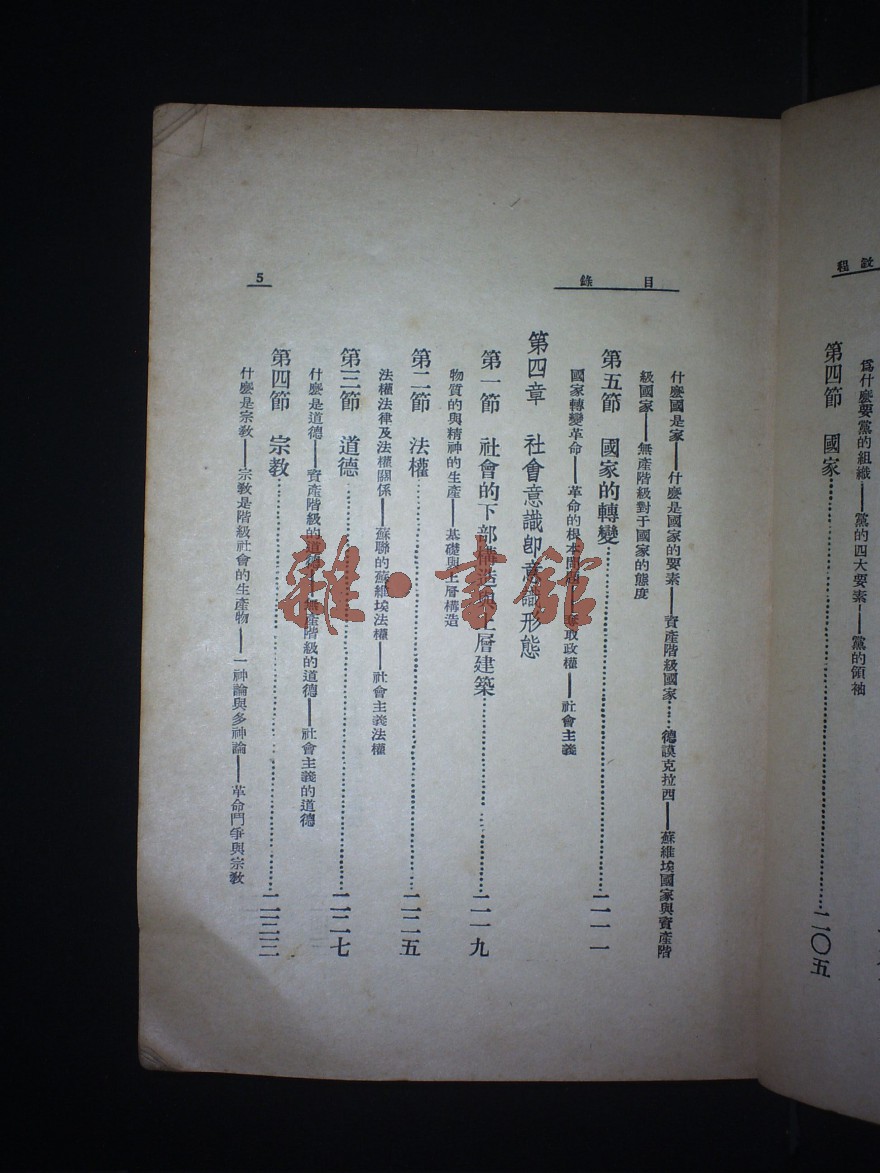 敎程
爲什麼要黨的組織——黨的四大要素——黨的領袖
第四節　國家……二〇五
目錄
5
什麼國是家——什麼是國家的要素——資產階級國家……德謨克拉西——蘇維埃國家與資產階
級國家——無產階級對于國家的態度
第五節　國家的轉變……二一一
國家轉變革命——革命的根本問題——奪取政權——社會主義
第四章　社會意識卽意識形態
第一節　社會的下部構造與上層建築……二一九
物質的與精神的生產——基礎與上層構造
第二節　法權……二二五
法權法律及法權關係——蘇聯的蘇維埃法權——社會主義法權
第三節　道德……二二七
什麼是道德——資產階級的道德——無產階級的道德——社會主義的道德
第四節　宗敎……二三三
什麼是宗敎——宗敎是階級社會的生產物——一神論與多神論——革命鬥爭與宗敎
雜·書館